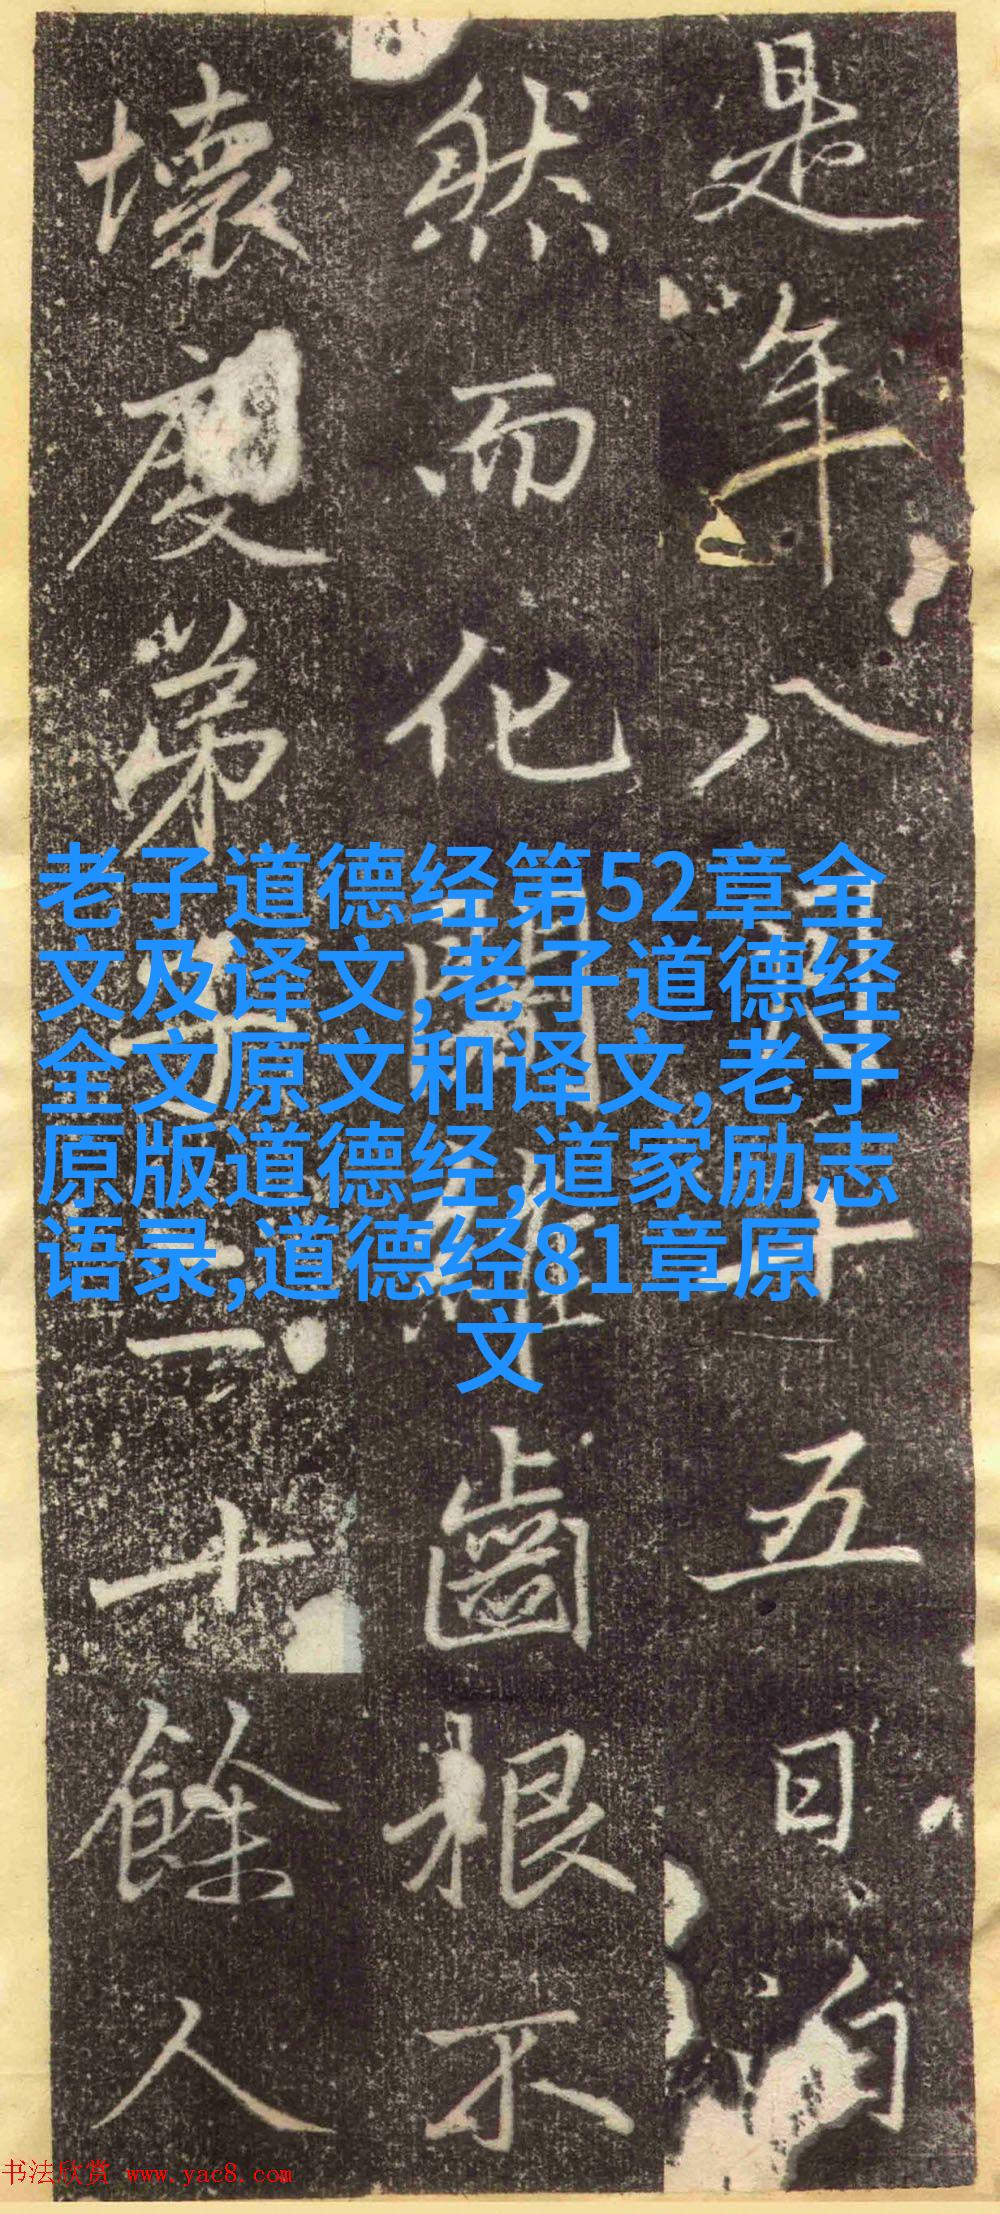 是年八月十五日
然而化闍維齒根不
壞度弟子十餘人
老子道德经第52章全
文及译文,老子道德经
全文原文和译文,老子
原版道德经,道家励志
语录,道德经81章原
文
书法欣赏 www.yac8.com